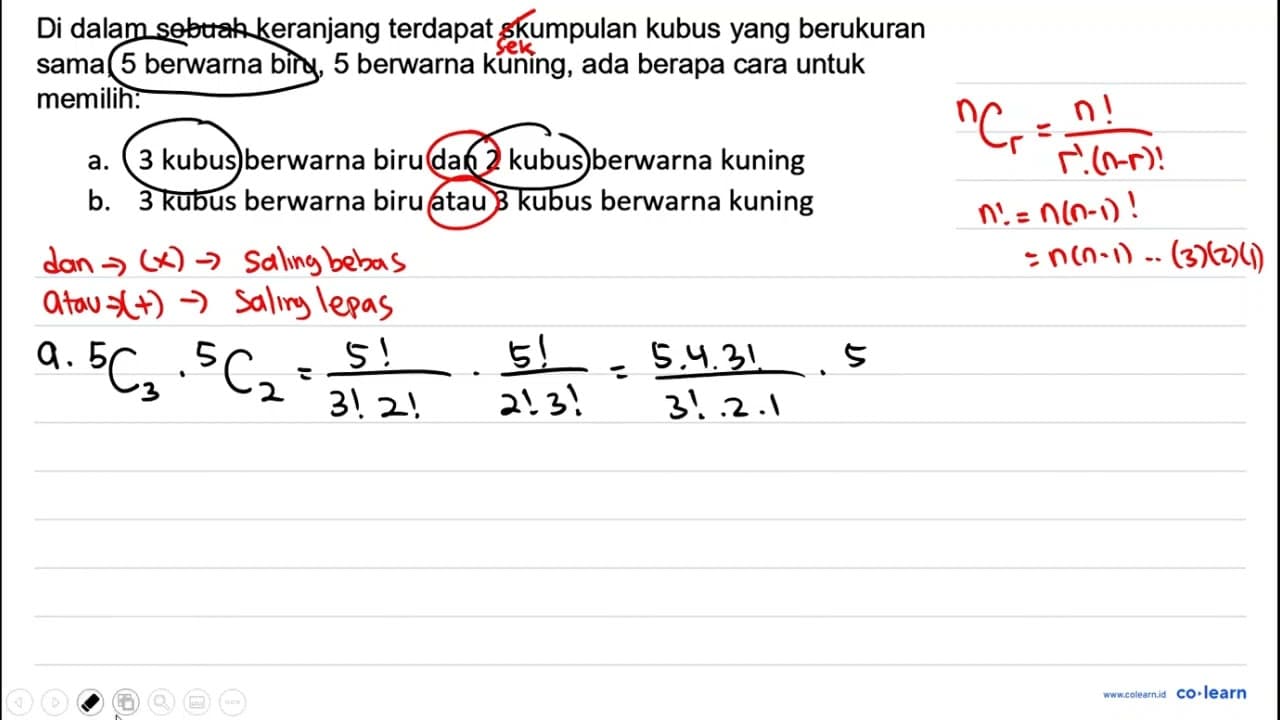 Di dalam sebuah keranjang terdapat skumpulan kubus yang berukuran
sek
sama, 5 berwarna biru, 5 berwarna kuning, ada berapa cara untuk
memilih:
a. 3 kubus berwarna biru dan 2 kubus berwarna kuning
b. 3 kubus berwarna biru atau 3 kubus berwarna kuning
ⁿCᵣ = n! / r!.(n-r)!
n! = n(n-1)!
= n(n-1) .. (3)(2)(1)
dan → (x) → Saling bebas
atau → (+) → Saling lepas
a. ⁵C₃ . ⁵C₂ = 5! / 3! 2! . 5! / 2! 3! = 5.4.3! / 3! .2.1 . 5
www.colearn.id co·learn